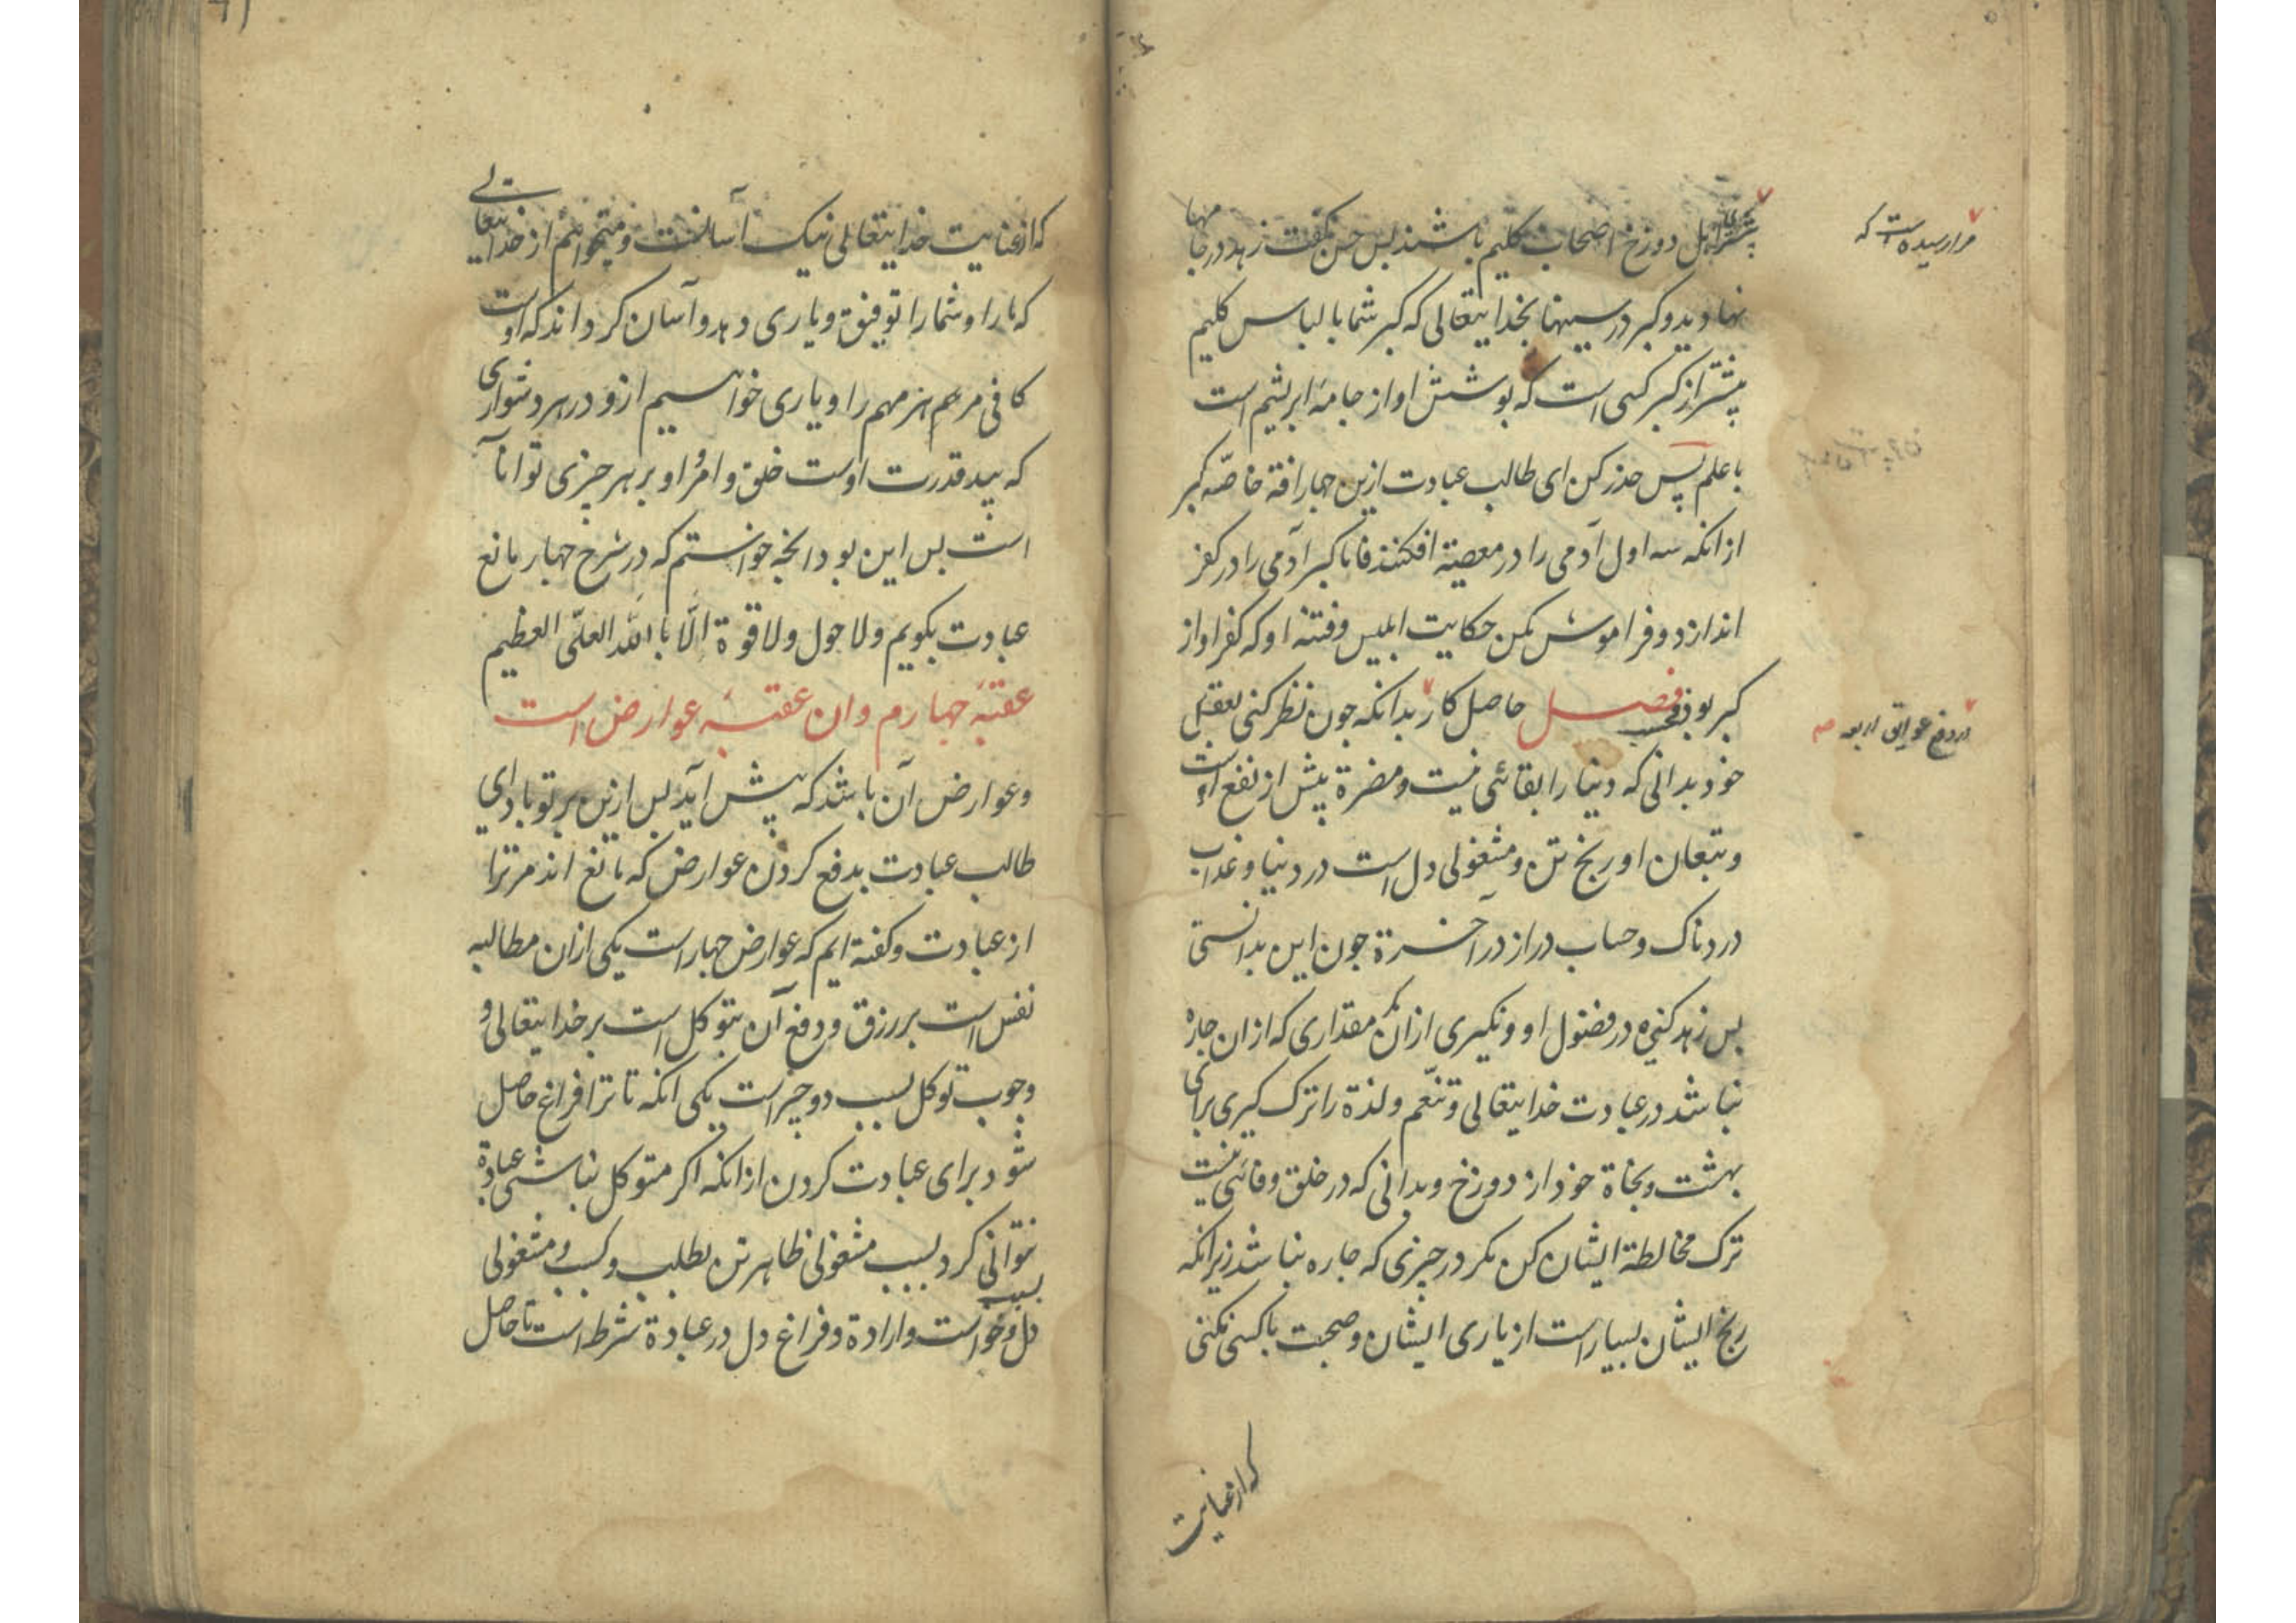 مرا رسیده است که
پیشتر از اهل دوزخ اصحاب کلیم باشند بس حسن کفت زهد در جامها
نهاوید و کبر در سینها بخدایتعالی که کبر شما با لباس کلیم
پیشتر از کبر کسی است که پوشش او از جامهٔ ابریشم است
با علم پس حذر کن ای طالب عبادت ازین چهار افة خاصّه کبر
از انکه سه اول آدمی را در معصیة افکنند فاما کبر آدمی را در کفر
اندازد و فراموش مکن حکایت ابلیس و فتنه او که کفر او از
کبر بود فحسب فصل حاصل کار بدانکه جون نظر کنی بعقل
در دفع عوایق اربعه صح
خود بدانی که دنیا را بقائی نیست و مضرة پیش از نفع است
و تبعان او رنج تن و مشغولی دل است در دنیا و عذاب
دردناک و حساب دراز در آخرة جون این بدانستی
بس زهد کنی در فضول او و نکیری از ان مکر مقداری که از ان جاره
نباشد در عبادت خدایتعالی و تنعّم و لذة را ترک کیری برای
بهشت و نجاة خود از دوزخ و بدانی که در خلق وفائی نیست
ترک مخالطة ایشان کن مکر در چیزی که جاره نباشد زیرانکه
رنج ایشان بسیار است از یاری ایشان و صحبت با کسی نکنی
که از عنایت
که از عنایت خدایتعالی نیک آسانست و میخواهم از خدایتعالی
که ما را و شما را توفیق و یاری دهد و آسان کرداند که اوست
کافی مر هم هر مهم را و یاری خواهیم از و در هر دشواری
که بید قدرت اوست خلق و امر و او بر هر چیزی توانا
است بس این بود انچه خواستم که در شرح چهار مانع
عبادت بکویم و لا حول و لا قوة الّا بالله العلیّ العظیم
عقبهٔ جهارم و ان عقبهٔ عوارض است
و عوارض آن باشد که پیش آید بس ازین بر تو باد ای
طالب عبادت بدفع کردن عوارض که مانع اند مر ترا
از عبادت و کفته ایم که عوارض جهار است یکی ازان مطالبه
نفس است بر رزق و دفع آن بتوکل است بر خدایتعالی و
وجوب توکل بسبب دو چیز است یکی انکه تا ترا فراغ حاصل
شود برای عبادت کردن از انکه اکر متوکل نباشی عبادة
نتوانی کرد بسبب مشغولی ظاهر تن بطلب و کسب و مشغولی
دل بسبب و خواست و ارادة و فراغ دل در عبادة شرط است تا حاصل